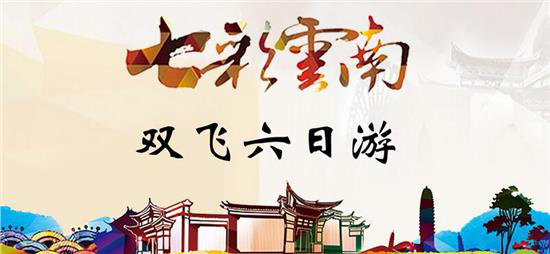 七彩雲南
双飞六日游